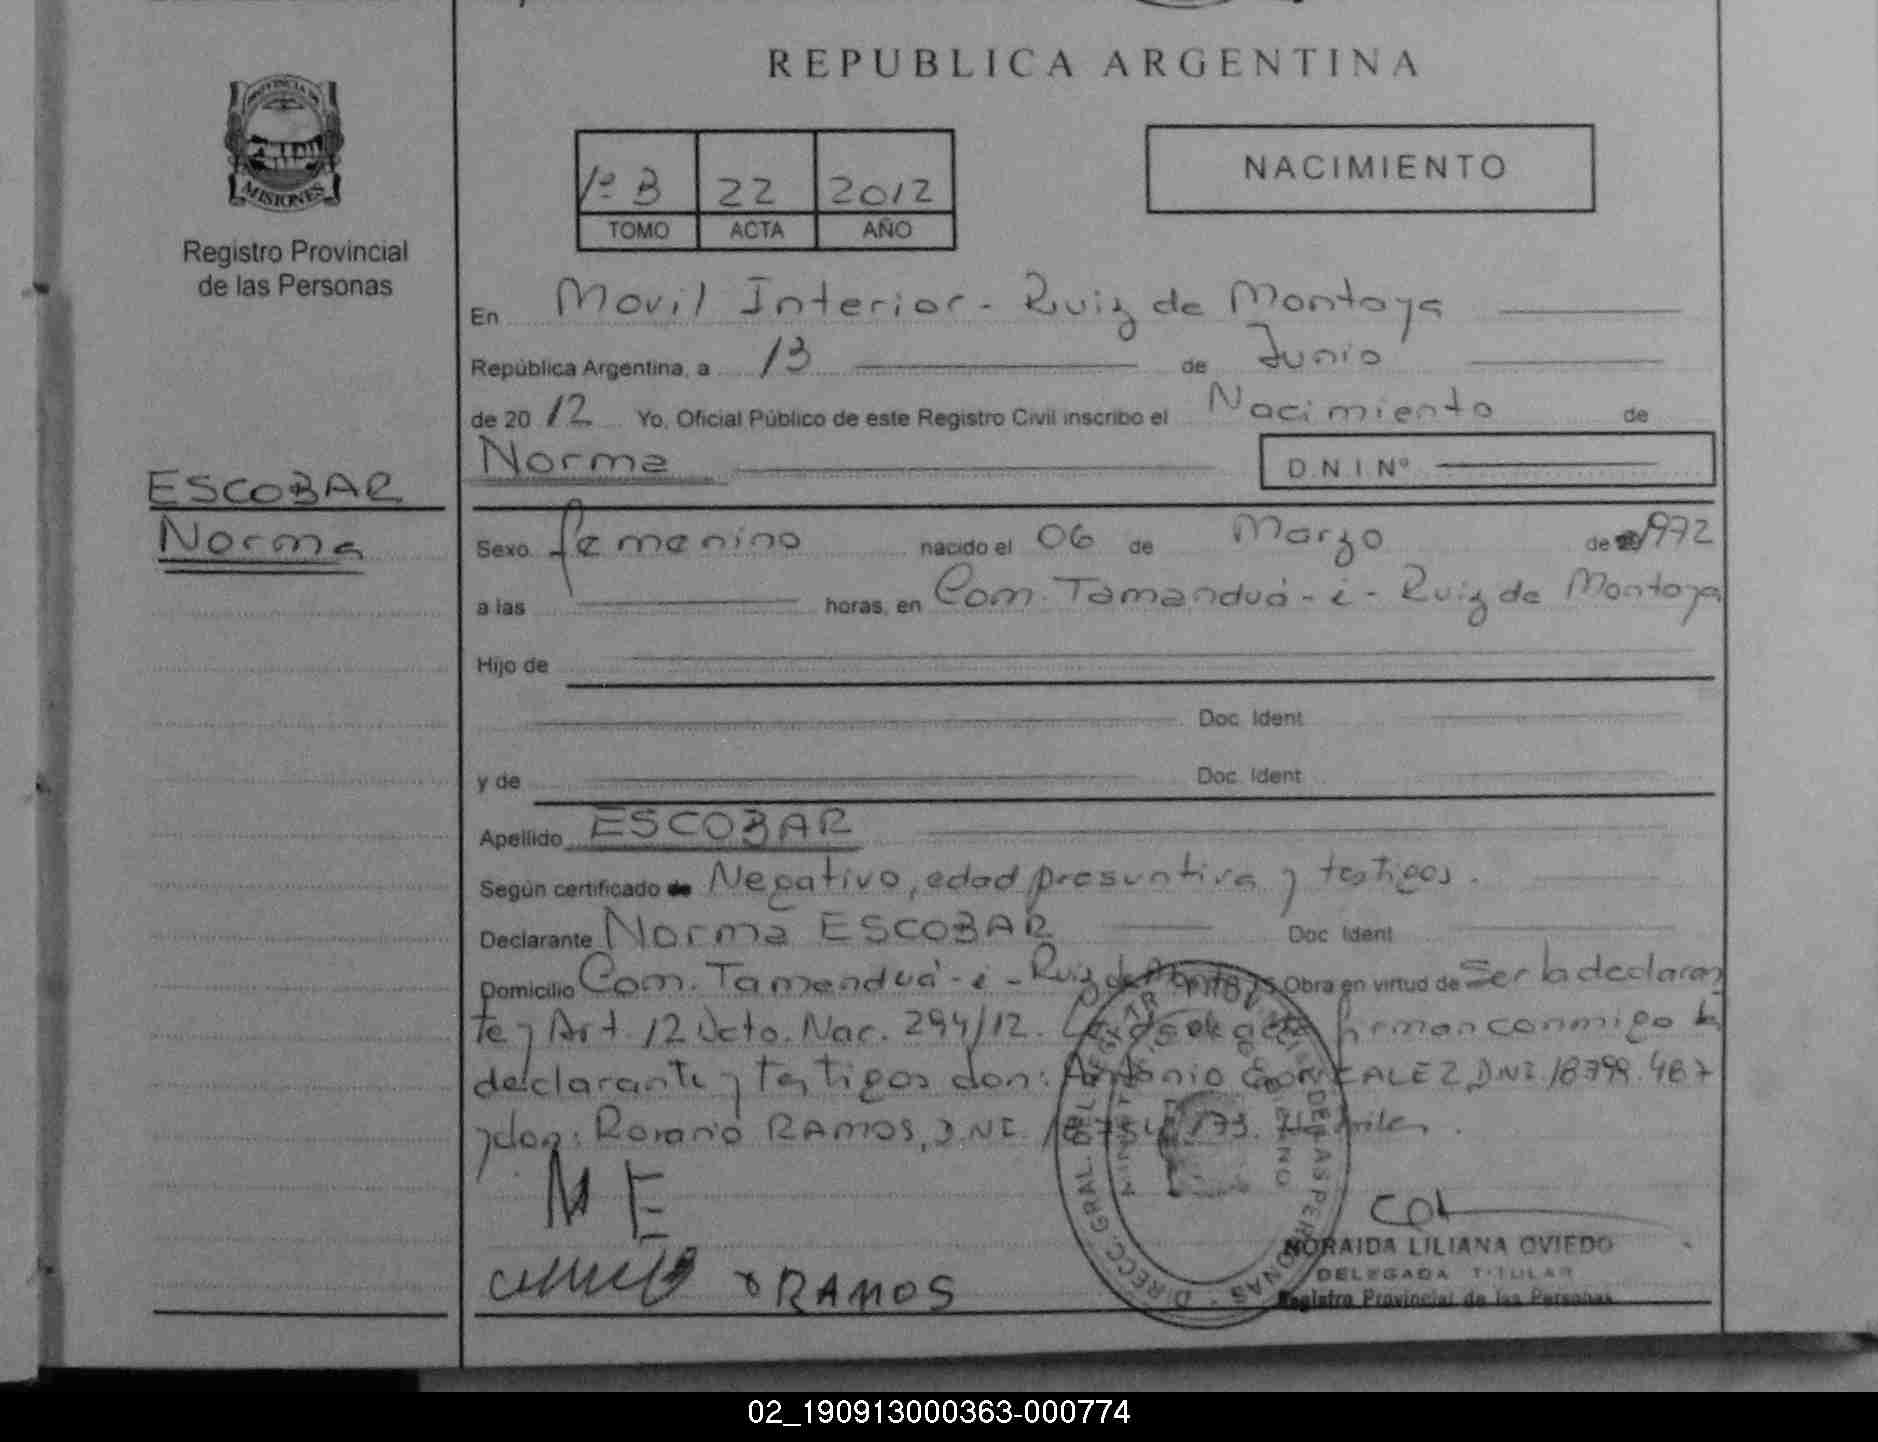 REPUBLICA ARGENTINA
PROVINCIA DE
MISIONES
Registro Provincial
de las Personas
1º B 22 2012
TOMO ACTA AÑO
NACIMIENTO
En Movil Interior - Ruiz de Montoya
República Argentina, a 13 de Junio
de 2012 Yo, Oficial Público de este Registro Civil inscribo el Nacimiento de
Norma D.N.I. Nº
ESCOBAR
Norma
Sexo femenino nacido el 06 de Marzo de 1972
a las horas, en Com. Tamanduá-i- Ruiz de Montoya
Hijo de
Doc. Ident.
y de Doc. Ident.
Apellido ESCOBAR
Según certificado de Negativo, edad presuntiva y testigos.
Declarante Norma ESCOBAR Doc. Ident.
Domicilio Com. Tamanduá-i- Ruiz de Montoya Obra en virtud de Ser la declaran
te y Art. 12 Dcto. Nac. 294/12. Leida el acta firman conmigo la
declarante y testigos don: Antonio GONZALEZ, DNI. 18.799.487
y don: Rosario RAMOS, D.NI.
N E
RAMOS
DIRECC. GRAL. DEL REGISTR DE LAS PERSONAS
NORAIDA LILIANA OVIEDO
DELEGADA TITULAR
Registro Provincial de las Personas
02_190913000363-000774